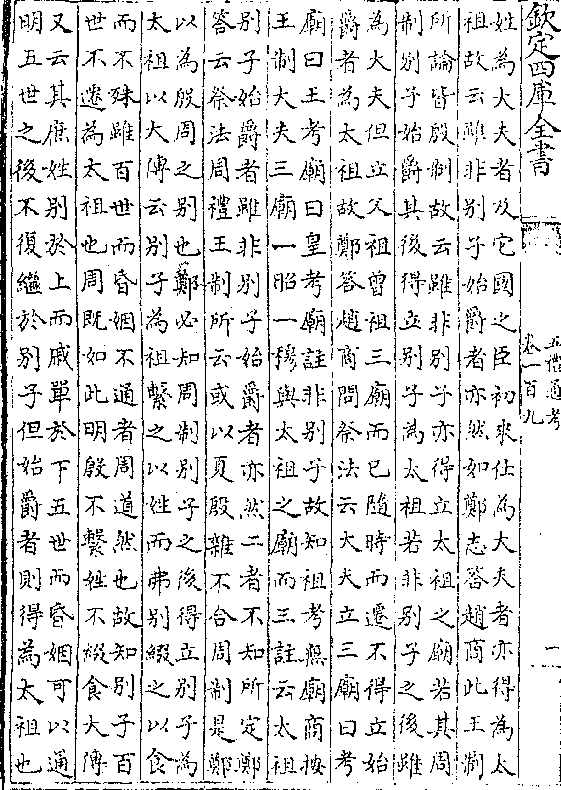 欽定四庫全書
五禮通考
卷一百九
一
姓為大夫者及它國之臣初來仕為大夫者亦得為太
祖故云雖非別子始爵者亦然如鄭志答趙商此王制
所論皆殷制故云雖非別子亦得立太祖之廟若其周
制別子始爵其後得立別子為太祖若非別子之後雖
為大夫但立父祖曾祖三廟而已隨時而遷不得立始
爵者為太祖故鄭答趙商問祭法云大夫立三廟曰考
廟曰王考廟曰皇考廟註非別子故知祖考無廟商按
王制大夫三廟一昭一穆與太祖之廟而三註云太祖
別子始爵者雖非別子始爵者亦然二者不知所定鄭
答云祭法周禮王制所云或以夏殷雜不合周制是鄭
以為殷周之別也鄭必知周制別子之後得立別子為
太祖以大傳云別子為祖繫之以姓而弗別綴之以食
而不殊雖百世而昏姻不通者周道然也故知別子百
世不遷為太祖也周既如此明殷不繫姓不綴食大傳
又云其庶姓別於上而戚單於下五世而昏姻可以通
明五世之後不復繼於別子但始爵者則得為太祖也